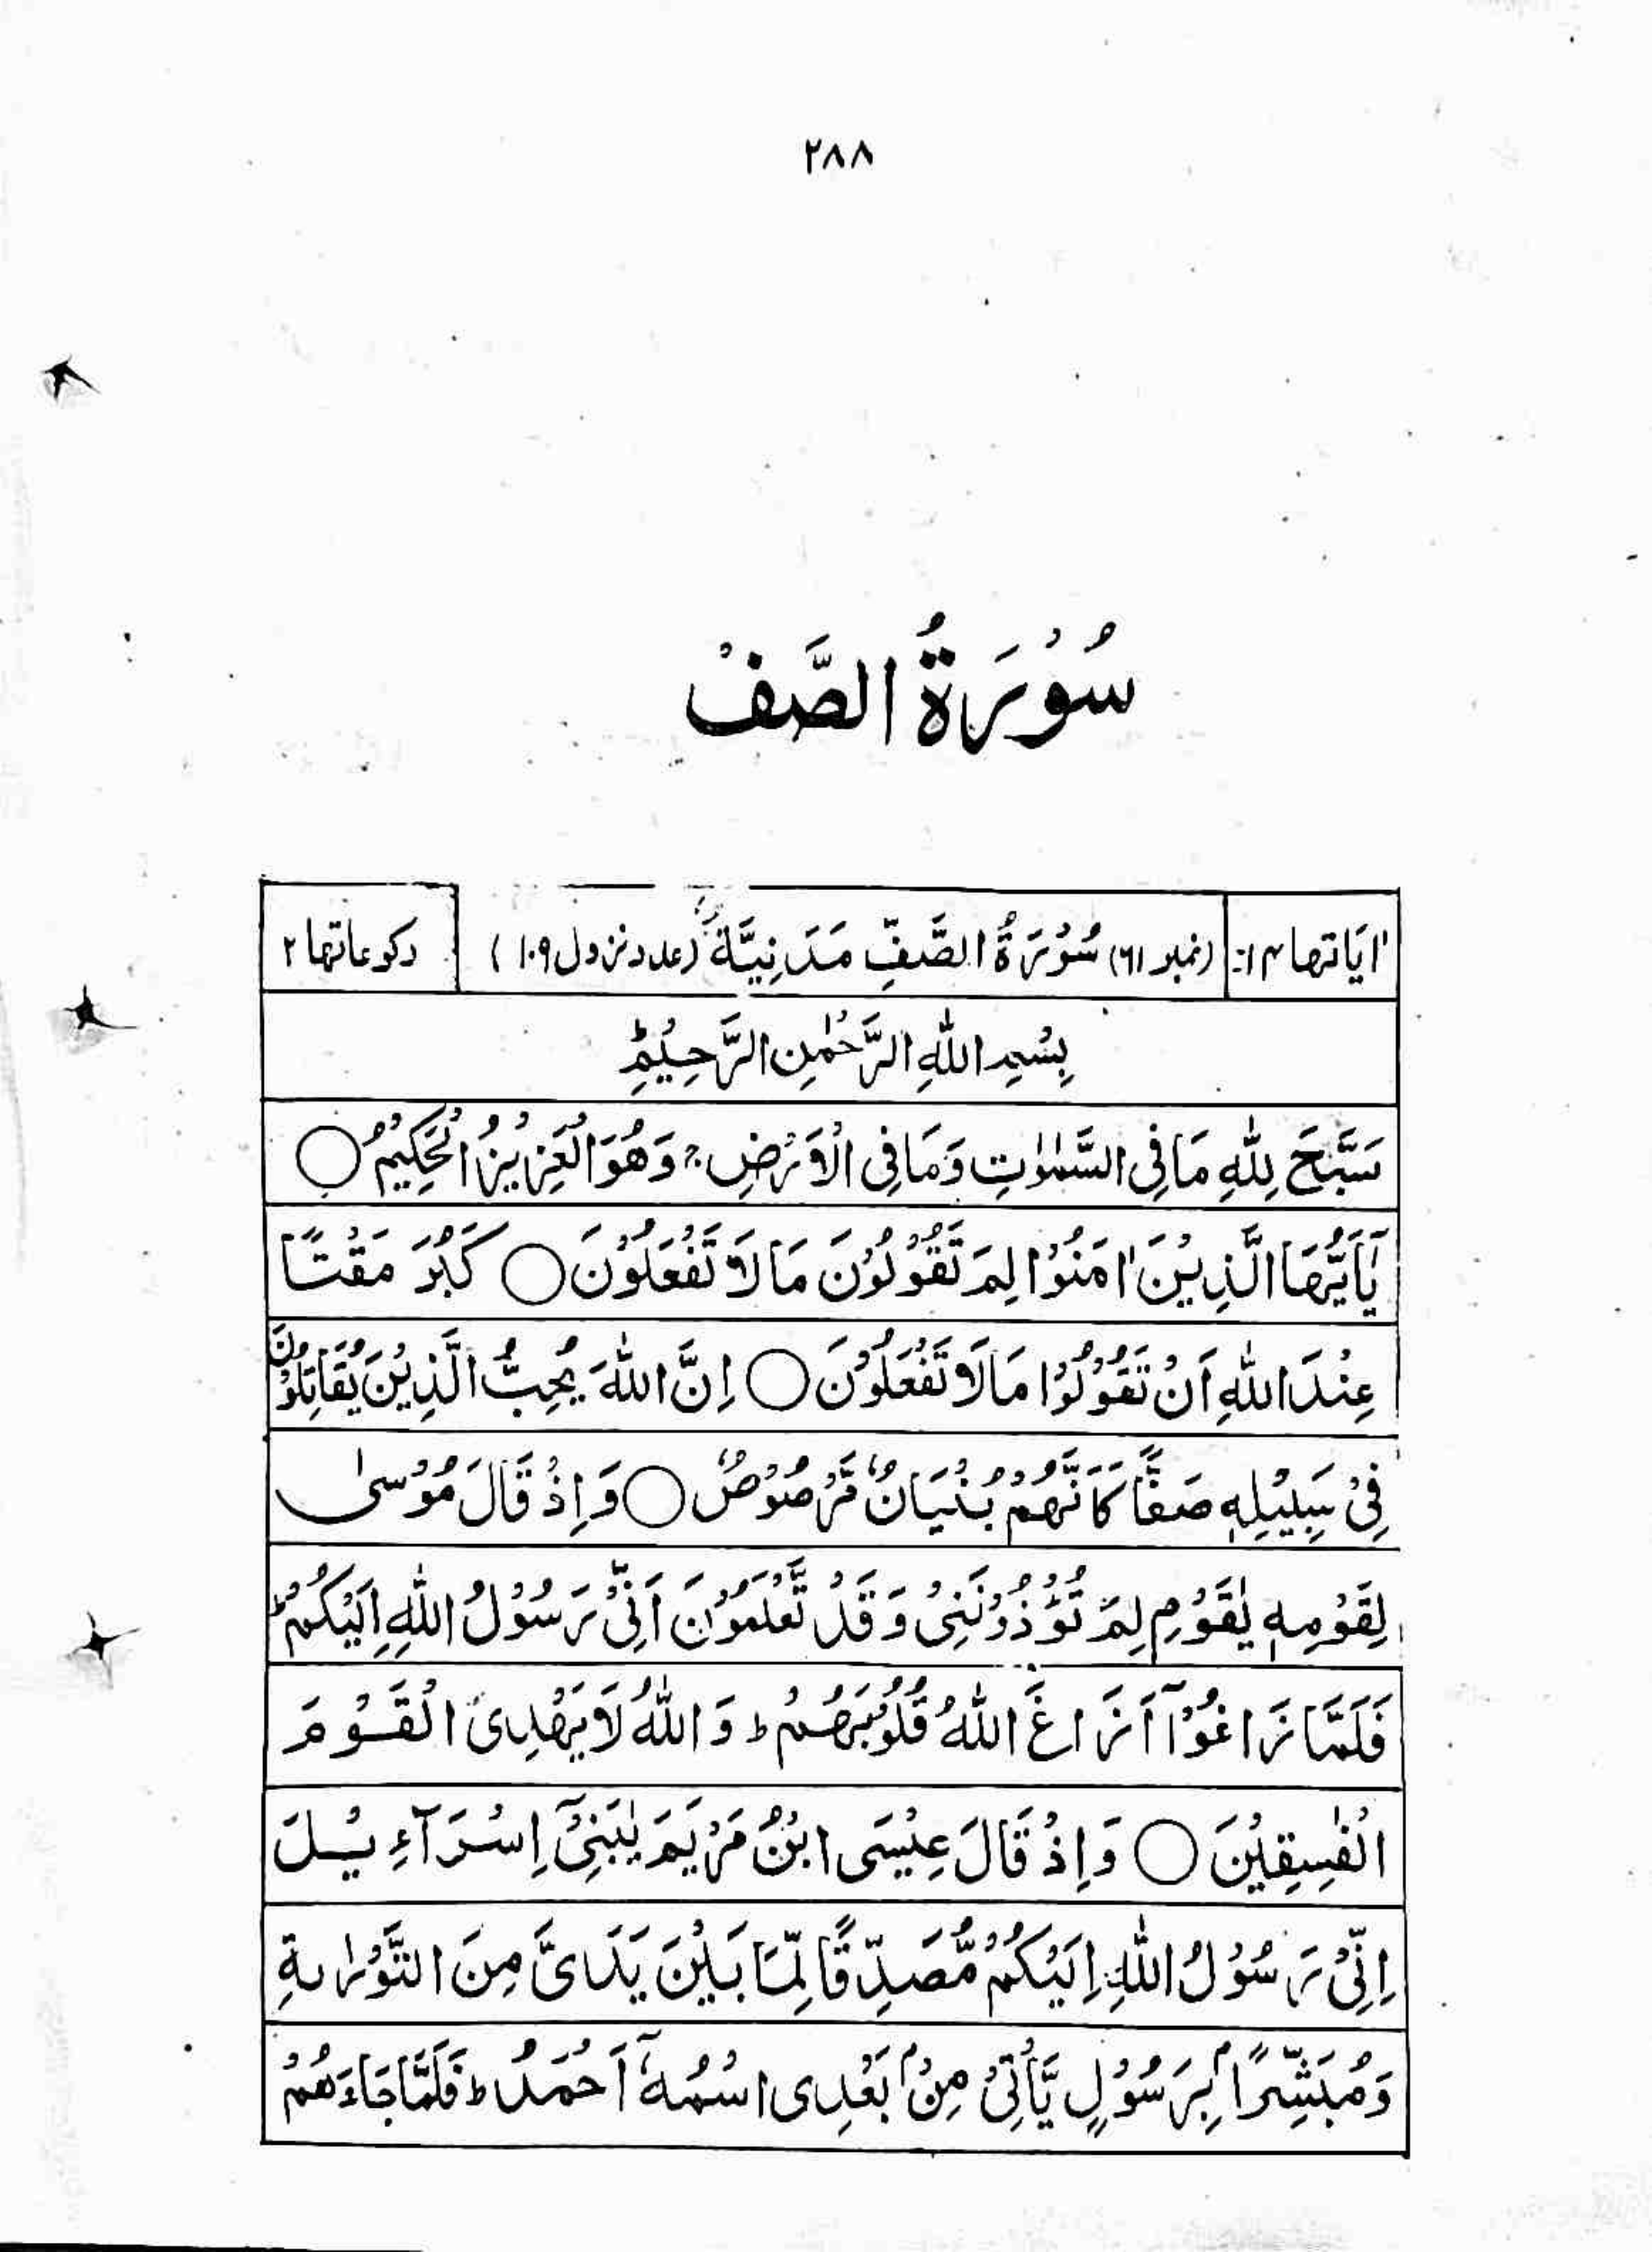 ۲۸۸
سُوْرَةُ الصَّفْ
اٰيَاتها ۱۴ (نمبر ۶۱) سُوْرَةُ الصَّفِّ مَدَنِيَّةٌ (عدد نزول ۱۰۹) رکوعاتها ۲
بِسْمِ اللّٰهِ الرَّحْمٰنِ الرَّحِيْمِ ؕ
سَبَّحَ لِلّٰهِ مَا فِى السَّمٰوٰتِ وَمَا فِى الْاَرْضِ ۚ وَهُوَ الْعَزِيْزُ الْحَكِيْمُ ○
يٰٓاَيُّهَا الَّذِيْنَ اٰمَنُوْا لِمَ تَقُوْلُوْنَ مَا لَا تَفْعَلُوْنَ ○ كَبُرَ مَقْتًا
عِنْدَ اللّٰهِ اَنْ تَقُوْلُوْا مَا لَا تَفْعَلُوْنَ ○ اِنَّ اللّٰهَ يُحِبُّ الَّذِيْنَ يُقَاتِلُوْنَ
فِىْ سَبِيْلِهٖ صَفًّا كَاَنَّهُمْ بُنْيَانٌ مَّرْصُوْصٌ ○ وَاِذْ قَالَ مُوْسٰى
لِقَوْمِهٖ يٰقَوْمِ لِمَ تُؤْذُوْنَنِىْ وَقَدْ تَّعْلَمُوْنَ اَنِّىْ رَسُوْلُ اللّٰهِ اِلَيْكُمْ ؕ
فَلَمَّا زَاغُوْٓا اَزَاغَ اللّٰهُ قُلُوْبَهُمْ ؕ وَاللّٰهُ لَا يَهْدِى الْقَوْمَ
الْفٰسِقِيْنَ ○ وَاِذْ قَالَ عِيْسَى ابْنُ مَرْيَمَ يٰبَنِىْٓ اِسْرَآءِيْلَ
اِنِّىْ رَسُوْلُ اللّٰهِ اِلَيْكُمْ مُّصَدِّقًا لِّمَا بَيْنَ يَدَىَّ مِنَ التَّوْرٰىةِ
وَمُبَشِّرًاۢ بِرَسُوْلٍ يَّاْتِىْ مِنْۢ بَعْدِى اسْمُهٗٓ اَحْمَدُ ؕ فَلَمَّا جَاءَهُمْ